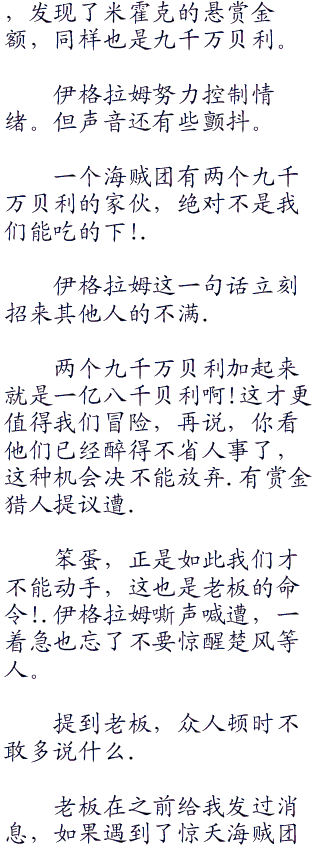 ，发现了米霍克的悬赏金
额，同样也是九千万贝利。
伊格拉姆努力控制情
绪。但声音还有些颤抖。
一个海贼团有两个九千
万贝利的家伙，绝对不是我
们能吃的下!.
伊格拉姆这一句话立刻
招来其他人的不满.
两个九千万贝利加起来
就是一亿八千贝利啊!这才更
值得我们冒险，再说，你看
他们已经醉得不省人事了，
这种机会决不能放弃.有赏金
猎人提议遭.
笨蛋，正是如此我们才
不能动手，这也是老板的命
令!.伊格拉姆嘶声喊遭，一
着急也忘了不要惊醒楚风等
人。
提到老板，众人顿时不
敢多说什么.
老板在之前给我发过消
息，如果遇到了惊天海贼团